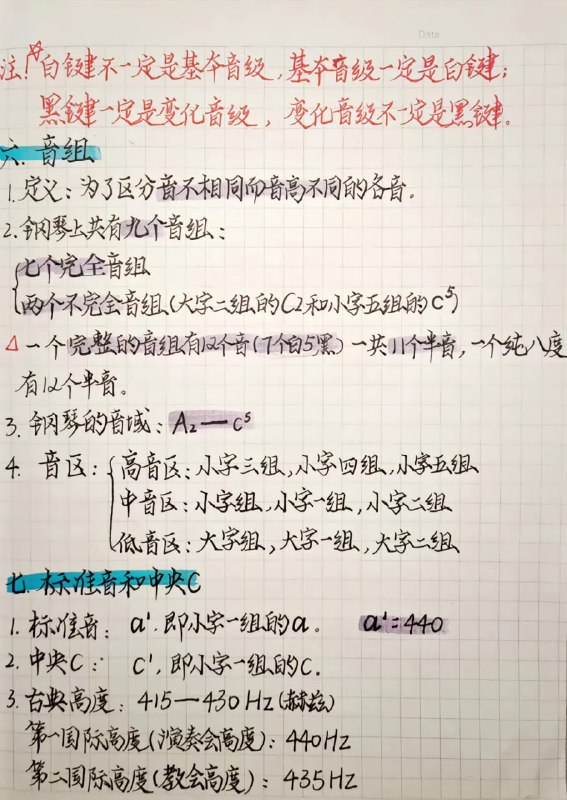 Date
注:☆白键不一定是基本音级,基本音级一定是白键;
黑键一定是变化音级,变化音级不一定是黑键。
六.音组
1.定义:为了区分音不相同而音高不同的各音。
2.钢琴上共有九个音组:
七个完全音组
两个不完全音组(大字二组的C2和小字五组的c⁵)
△一个完整的音组有12个音(7个白5黑)一共11个半音,一个纯八度
有12个半音。
3.钢琴的音域:A₂—c⁵
4.音区:高音区:小字三组,小字四组,小字五组
中音区:小字组,小字一组,小字二组
低音区:大字组,大字一组,大字二组
七.标准音和中央C
1.标准音:a¹.即小字一组的a。 a¹=440
2.中央C: C¹,即小字一组的C.
3.古典高度:415—430Hz(赫兹)
第一国际高度(演奏会高度):440Hz
第二国际高度(教会高度):435Hz